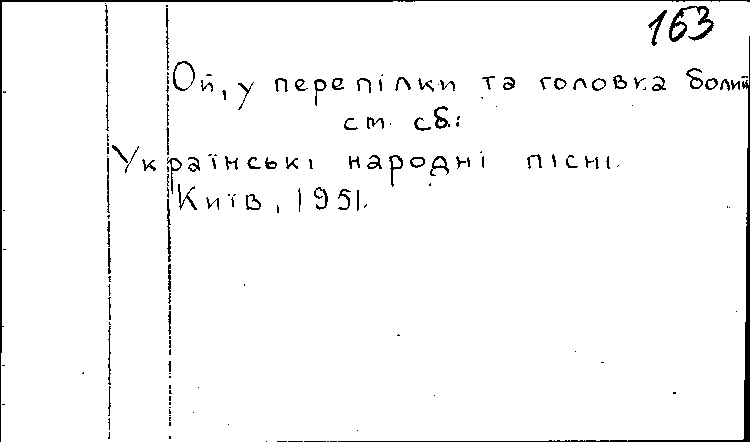 163
Ой, у перепілки та головка болить
ст. сб.:
Українські народні пісні.
Київ, 1951.